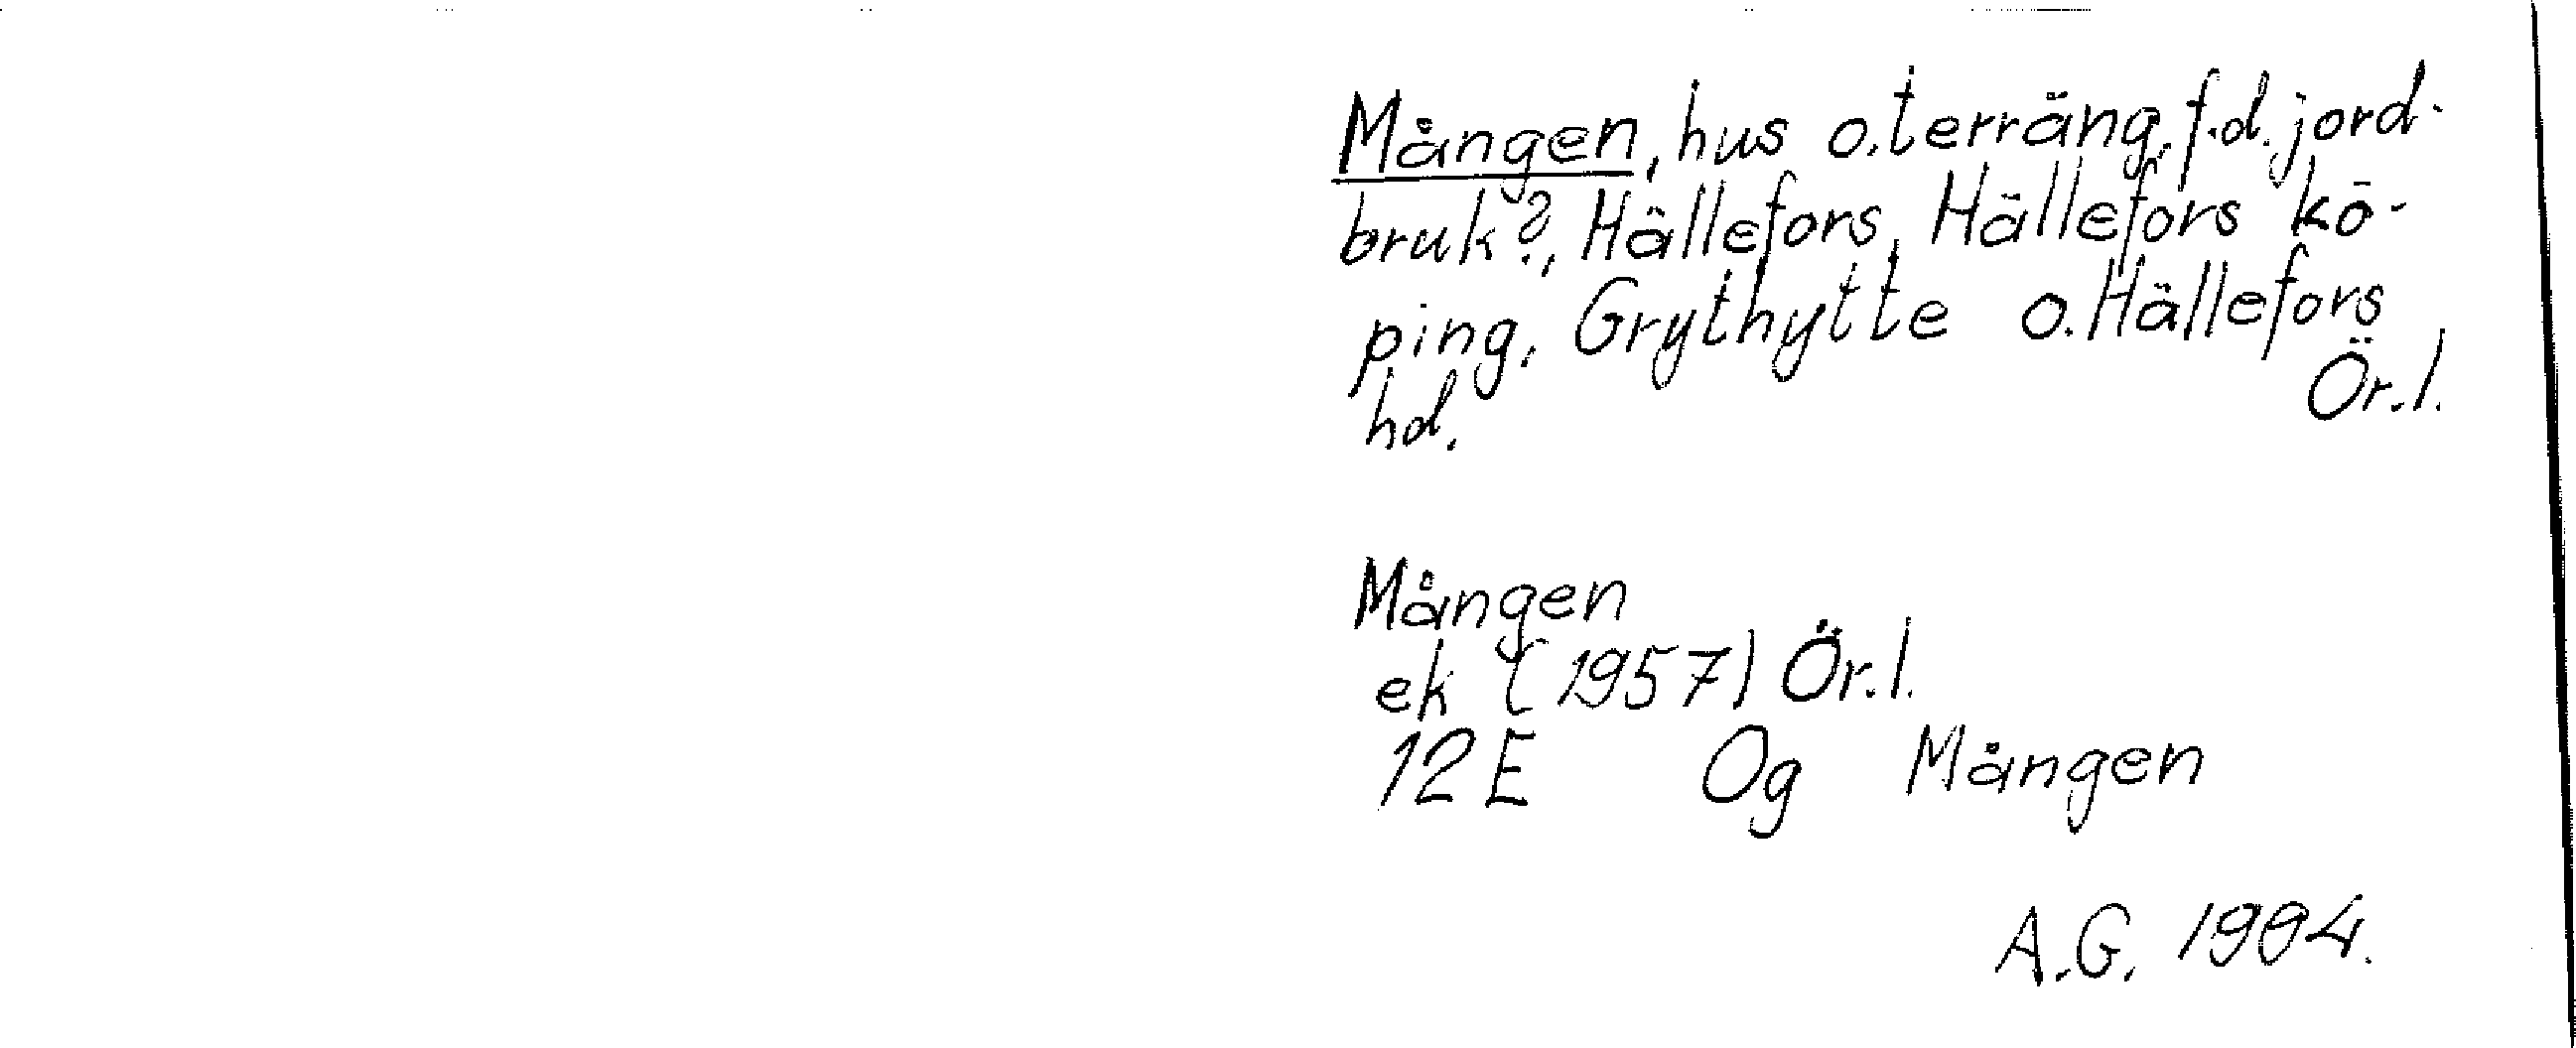 Mången, hus o. terräng, f.d. jord-
bruk?, Hällefors, Hällefors kö-
ping, Grythytte o. Hällefors
hd. Ör.l.
Mången
ek (1957) Ör.l.
12E Og Mången
A.G. 1994.